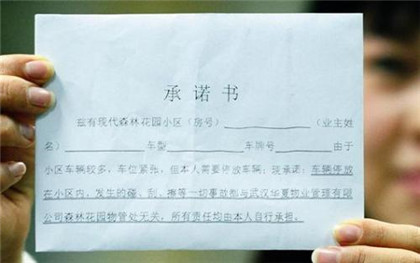 承诺书
兹有现代森林花园小区（房号）（业主姓
名）车型车牌号由于
小区车辆较多，车位紧张，但本人需要停放车辆；兹承诺：车辆停放
在小区内，发生的碰、刮、擦等一切事故皆与武汉华夏物业管理有限
公司森林花园物管处无关，所有责任均由本人自行承担。